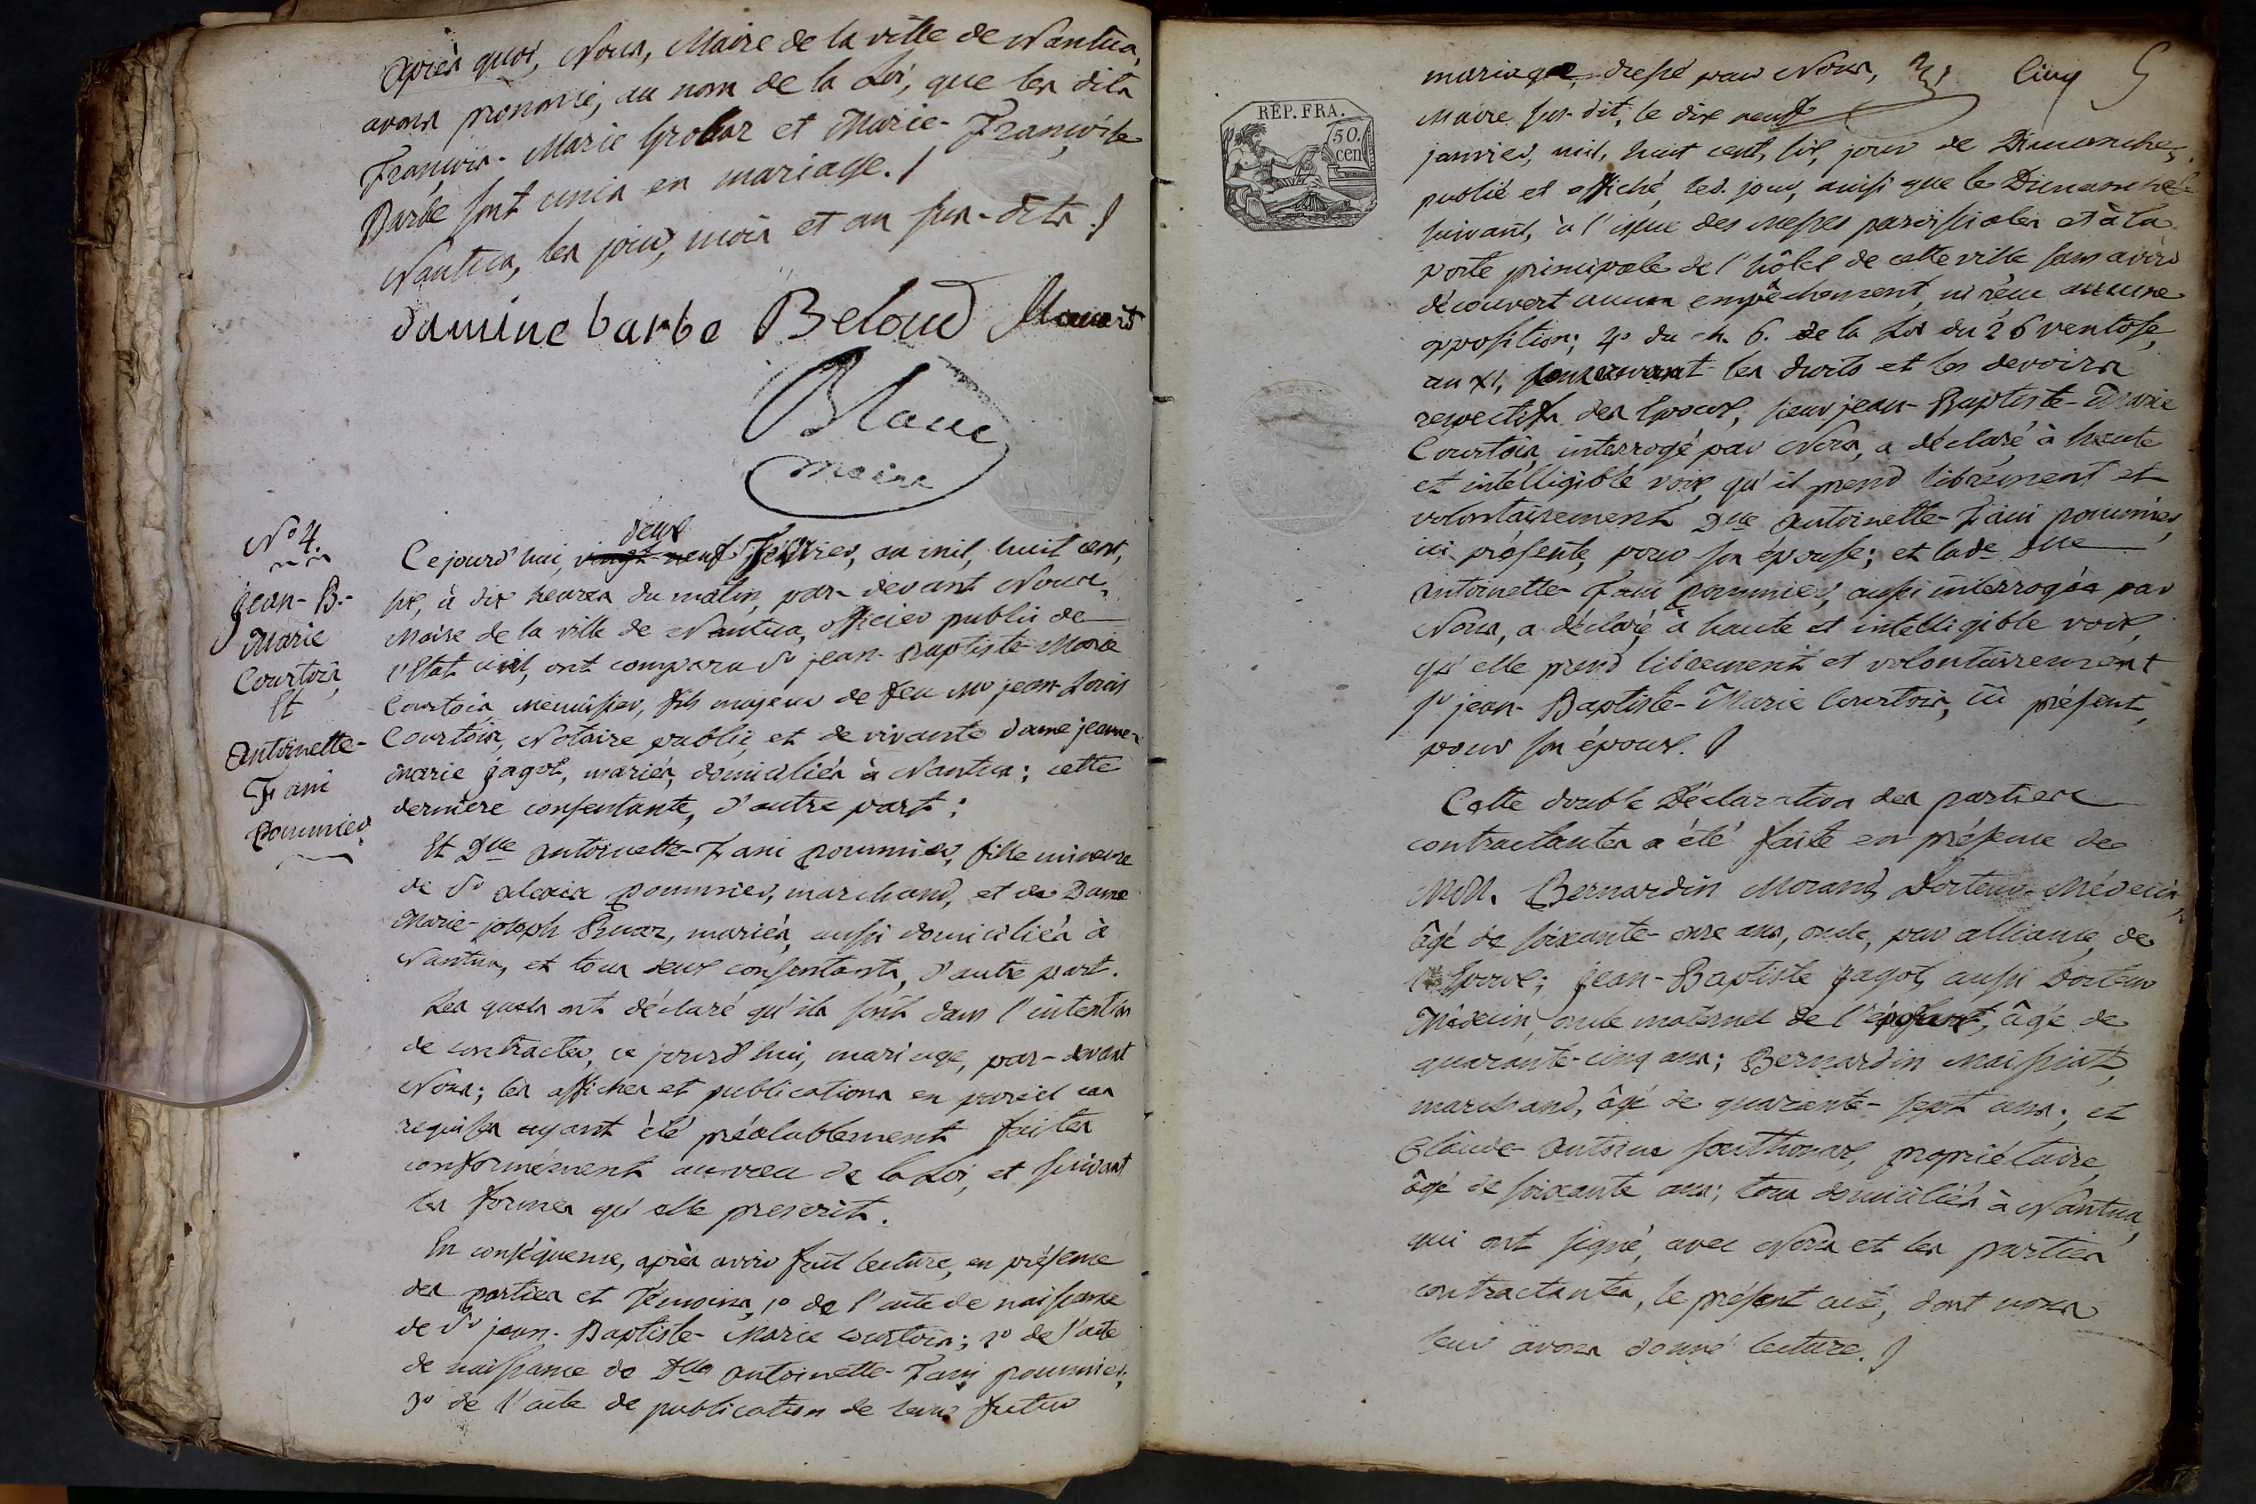 Après quoi, Nous, Maire de la ville de Nantua,
avons prononcé, au nom de la Loi, que les dits
François-Marie Grobaz et Marie-Françoise
Barbe sont unis en mariage./
Nantua, les jour, mois et an sus-dits./
damine barbe Beloud
Blanc
maire
N° 4.
Jean-B.-
Marie
Courtois,
Et
Antoinette-
Fani
Pommier
deux
Ce jourd'hui, vingt-neuf Février, an mil, huit cent,
six, à dix heures du matin, par-devant Nous,
Maire de la ville de Nantua, officier public de
l'Etat civil, ont comparu Sr jean-Baptiste-Marie
Courtois, menuisier, fils majeur de feu Mr jean-Louis
Courtois, Notaire public, et de vivante dame jeanne-
marie jagot, mariés, domiciliés à Nantua; cette
dernière consentante, d'autre part;
Et Dlle antoinette-Fani pommier, fille mineure
de Sr alexis pommier, marchand, et de Dame
Marie-joseph Druaz, mariés, aussi domiciliés à
Nantua, et tous deux consentants, d'autre part.
Les quels ont déclaré qu'ils sont dans l'intention
de contracter, ce jourd'hui, mariage, par-devant
Nous; les affiches et publications en pareil cas
requises ayant été préalablement faites
conformément au vœu de la Loi, et suivant
les formes qu'elle prescrit.
En conséquence, après avoir fait lecture, en présence
des parties et témoins, 1° de l'acte de naissance
de Sr jean-Baptiste-Marie courtois; 2° de l'acte
de naissance de Dlle antoinette-Fani pommier;
3° de l'acte de publication de leur futur
Cinq 5
mariage, dressé par Nous,
Maire sus-dit, le dix neuf
REP. FRA.
50.
cen
janvier, mil, huit cent, six, jour de Dimanche,
publié et affiché, led. jour, ainsi que le Dimanche
suivant, à l'issue des messes paroissiales et à la
porte principale de l'hôtel de cette ville sans avoir
découvert aucun empêchement, ni réçu aucune
opposition; 4° du ch. 6. de la Loi du 26 ventose,
an XI, concernant les droits et les devoirs
respectifs des Epoux, sieur jean-Baptiste-Marie
Courtois, interrogé par Nous, a déclaré à haute
et intelligible voix, qu'il prend librement et
volontairement Dlle antoinette-Fani pommier,
ici présente, pour son épouse; et lade Dlle
antoinette-Fani pommier, aussi interrogée par
Nous, a déclaré à haute et intelligible voix,
qu'elle prend librement et volontairement
Sr jean-Baptiste-Marie Courtois, ici présent,
pour son époux./
Cette double Déclaration des parties
contractantes a été faite en présence de
MM. Bernardin Morand, Docteur-Médecin,
âgé de soixante-onze ans, oncle, par alliance, de
l'Epoux; jean-Baptiste jagot, aussi Docteur
Médecin, oncle maternel de l'époux, âgé de
quarante-cinq ans; Bernardin Maissiat,
marchand, âgé de quarante-sept ans; et
Claude-antoine Southonax, propriétaire,
âgé de soixante ans; tous domiciliés à Nantua,
qui ont signé, avec Nous et les parties
contractantes, le présent acte, dont nous
leur avons donné lecture./